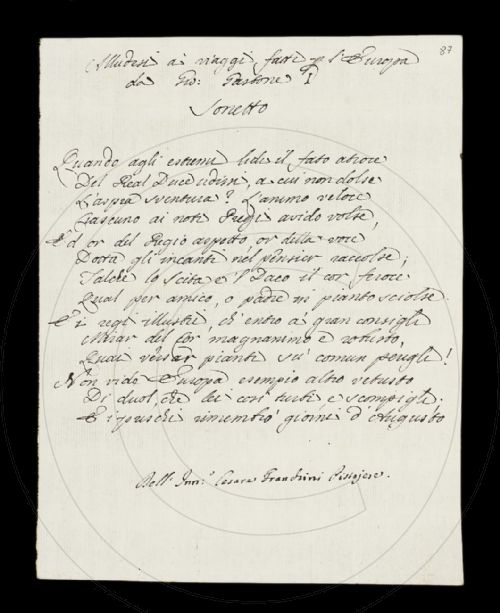 87
Alludesi ai viaggi, fatti p l'Europa
da Gio: Gastone I
Sonetto
Quando agli estremi lidi il fato atroce
Del Real Duce udissi, a cui non dolse
L'aspra sventura? L'animo veloce
Ciascuno ai noti Pregi avido volse,
E d or del Regio aspetto, or della voce
Dotta gli incanti nel pensier raccolse;
Talchè lo Scita e 'l Daco il cor feroce
Qual per amico, o padre in pianto sciolse.
E i regi illustri, ch' entro a' gran consigli
Mirar del cor magnanimo e robusto,
Quai versar pianti su' comun perigli!
Non vide Europa esempio altro vetusto
Di duol, che lei così turbi e scompigli.
E i giorni d'Augusto
Dell' Cesare Franchini Pistojese.